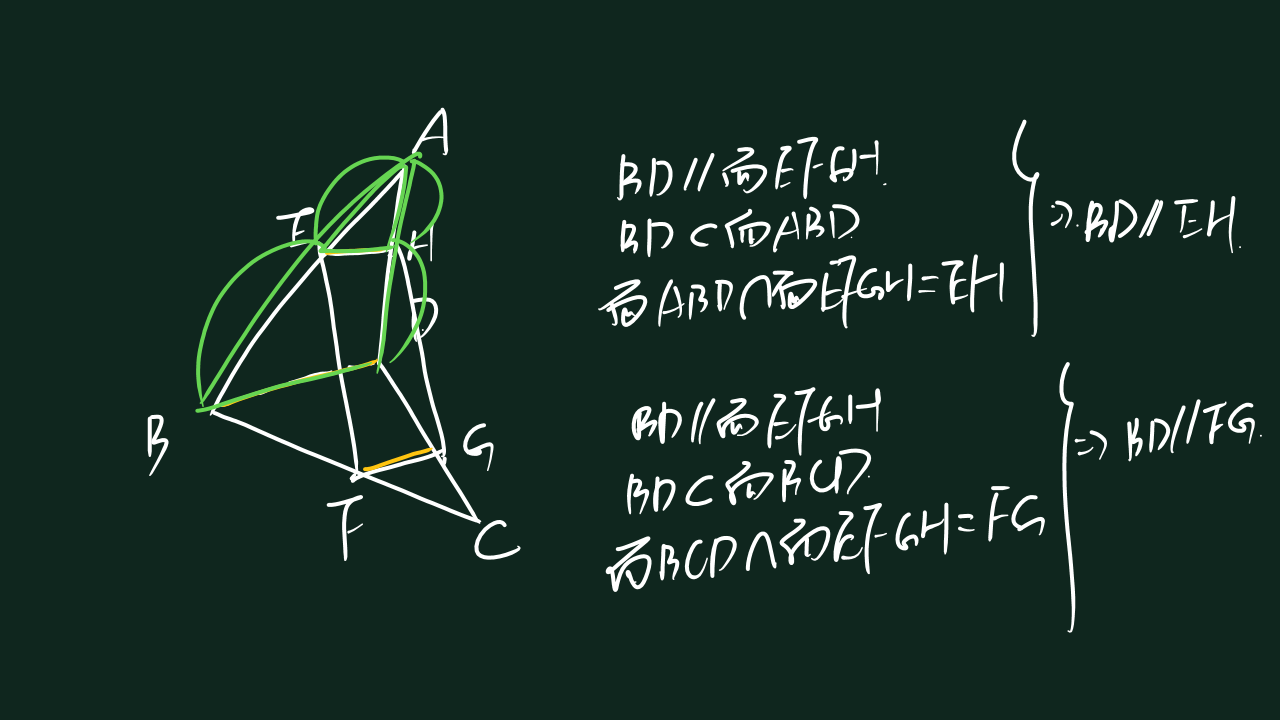 A
E
H
D
B
G
F
C
BD//面EFGH.
BD⊂面ABD
面ABD∩面EFGH=EH
⇒BD//EH.
BD//面EFGH
BD⊂面BCD.
面BCD∩面EFGH=FG
⇒BD//FG.